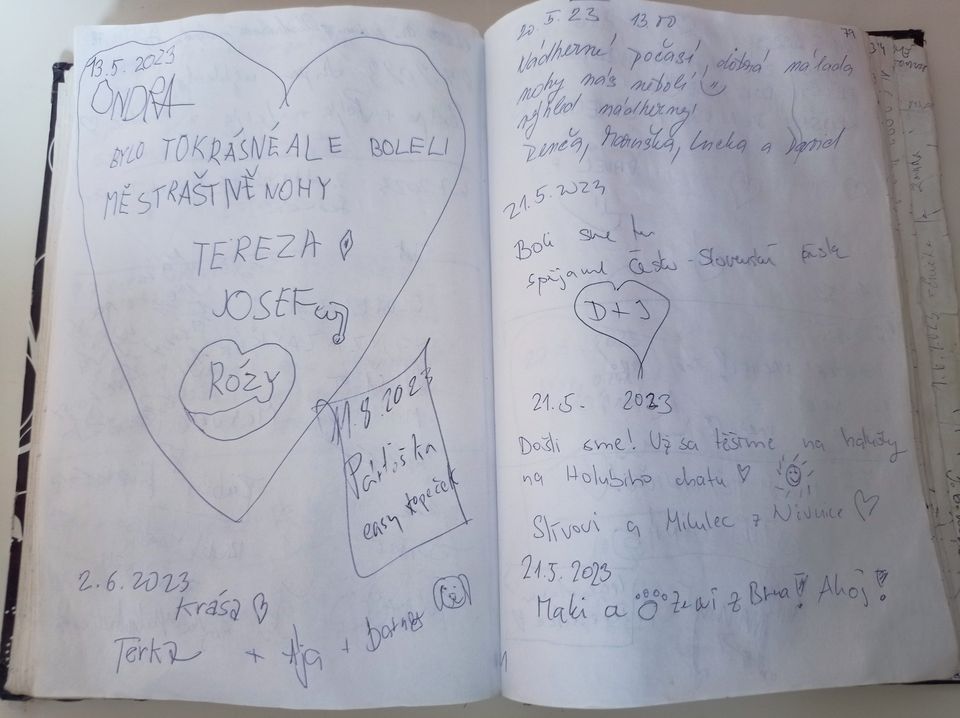 13.5.2023
ONDRA
BYLO TO KRÁSNÉ ALE BOLELI
MĚ STRAŠTIVĚ NOHY
TEREZA
JOSEF
RÓZY
11.8.2023
Párťoška
easy kopeček
2.6.2023
Krása
Terka + Ája + Barney
20.5.23 13 00
79
Nádherné počasí, dobrá nálada
nohy nás nebolí
výhled nádherný!
Zeněk, Maruška, Lucka a David
21.5.2023
Boli sme tu
spájame Česko-Slovenská láska
D + J
21.5. 2023
Došli sme! Už sa těšíme na halušky
na Holubiho chatu
Slívovi a Mikulec z Nivnice
21.5.2023
Maki a z Brna! Ahoj!